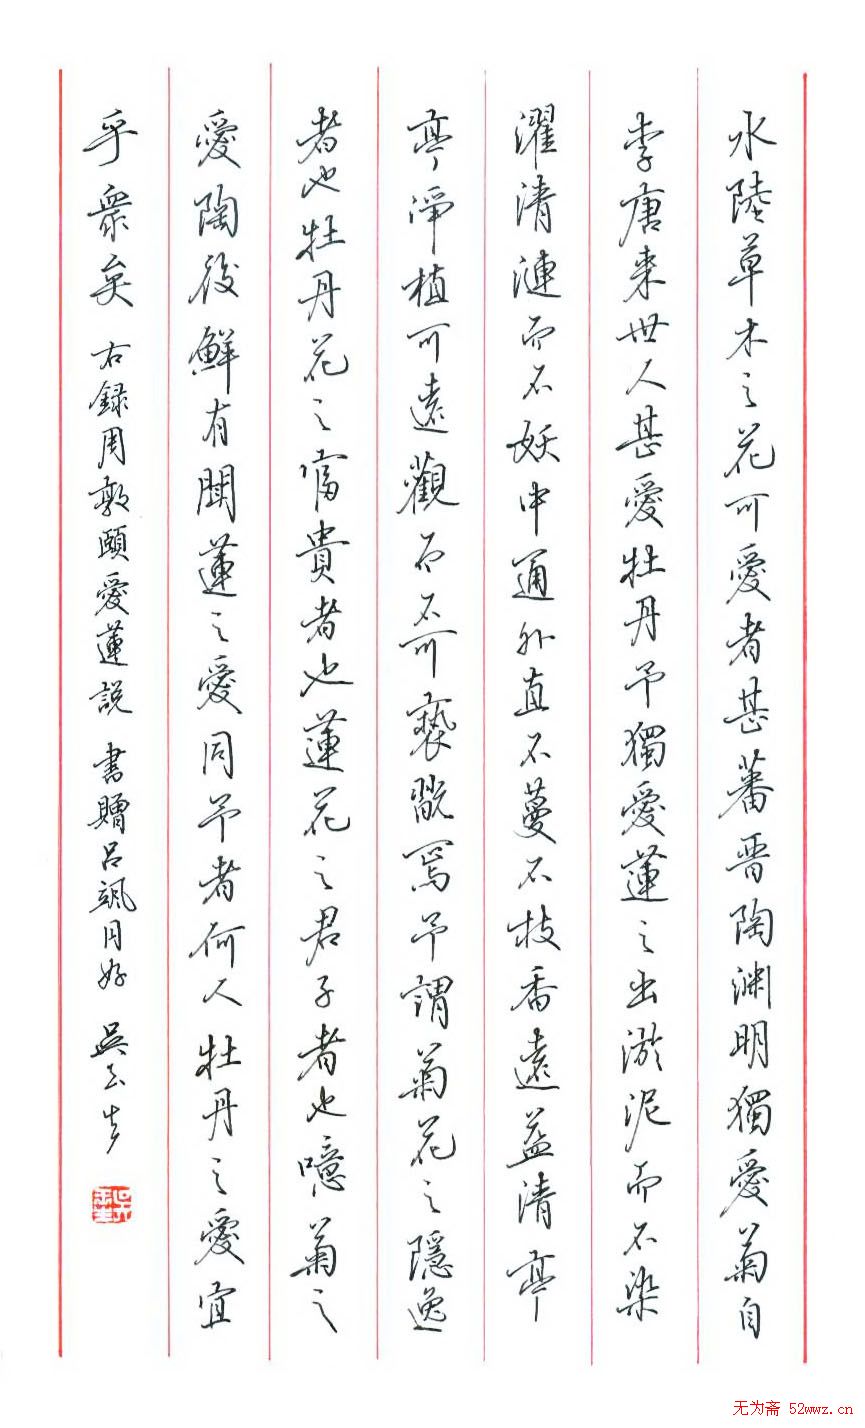 水陸草木之花可愛者甚蕃晋陶渊明獨愛菊自
李唐来世人甚愛牡丹予獨愛蓮之出淤泥而不染
濯清漣而不妖中通外直不蔓不枝香遠益清亭
亭淨植可遠觀而不可褻翫焉予謂菊花之隱逸
者也牡丹花之富貴者也蓮花之君子者也噫菊之
愛陶後鮮有聞蓮之愛同予者何人牡丹之愛宜
乎衆矣 右録周敦頤愛蓮説 書贈吕颯同好 吳玉生
无为斋 52wwz.cn